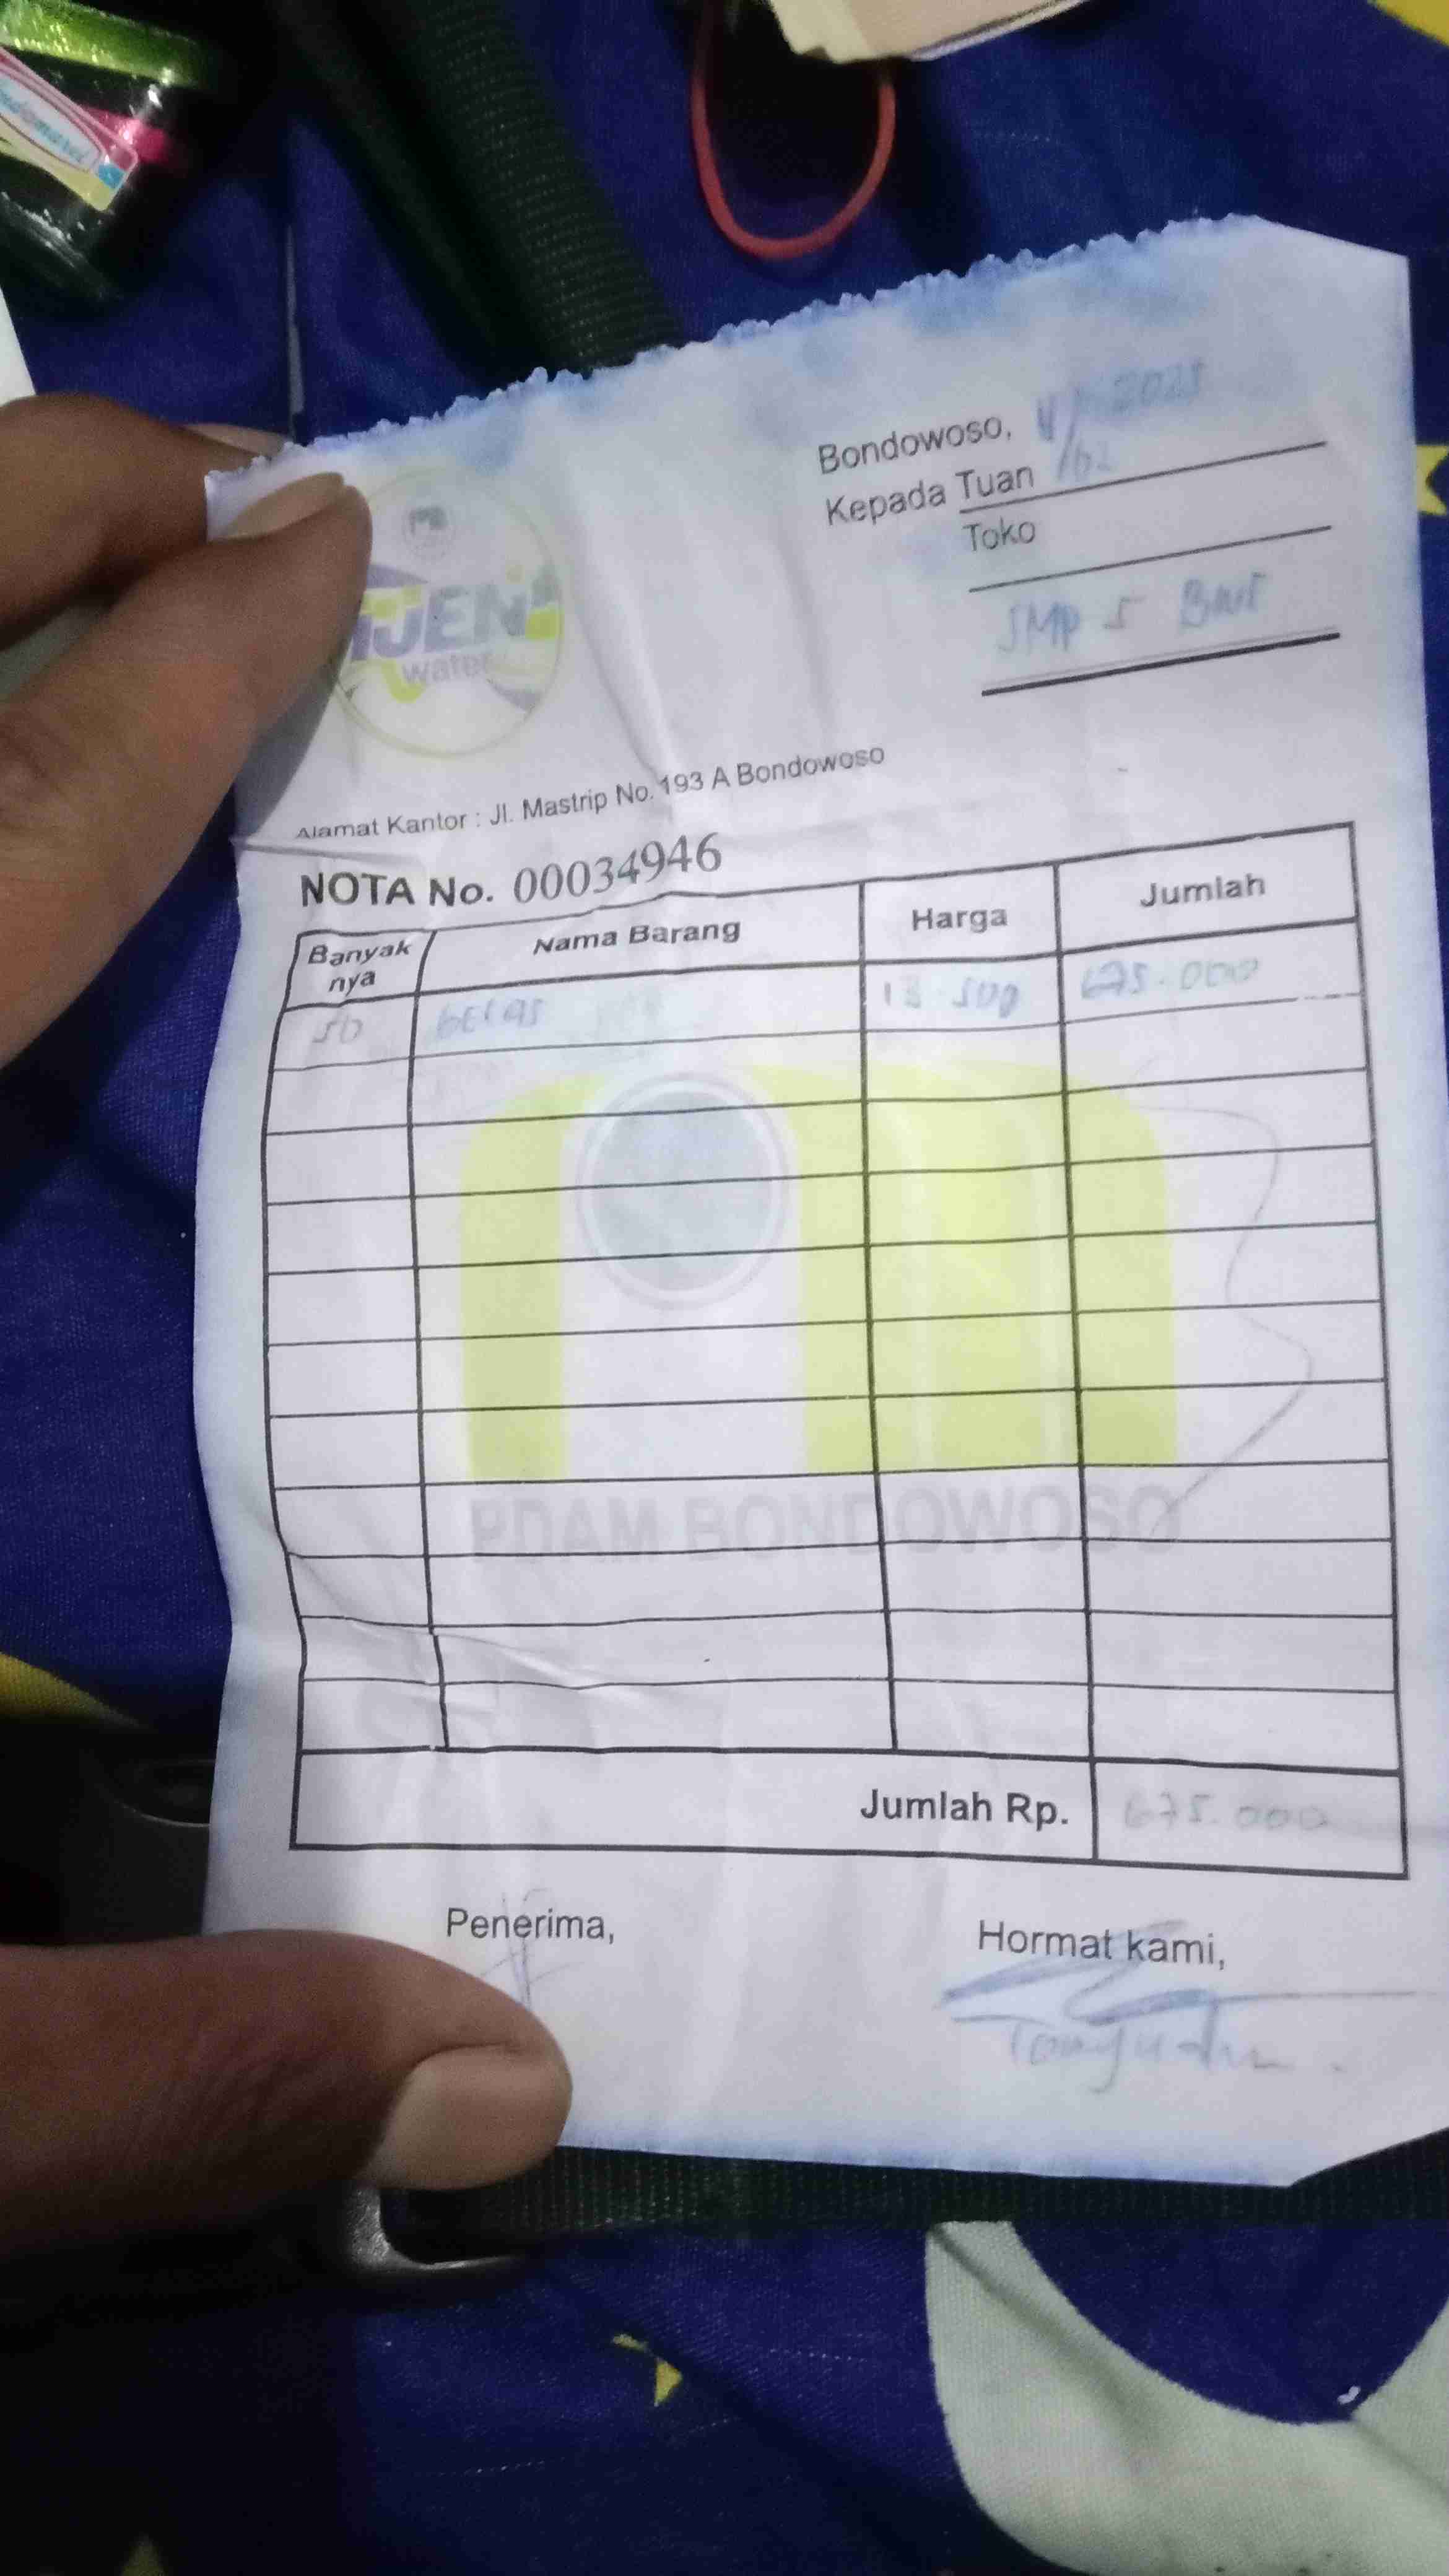 Bondowoso, 11/02 2025
Kepada Tuan
Toko
SMP 5 BWS
IJEN
water
Alamat Kantor : Jl. Mastrip No. 193 A Bondowoso
NOTA No. 00034946
Banyak nya Nama Barang Harga Jumlah
50 gelas 13.500 675.000
PDAM BONDOWOSO
Jumlah Rp. 675.000
Penerima, Hormat kami,